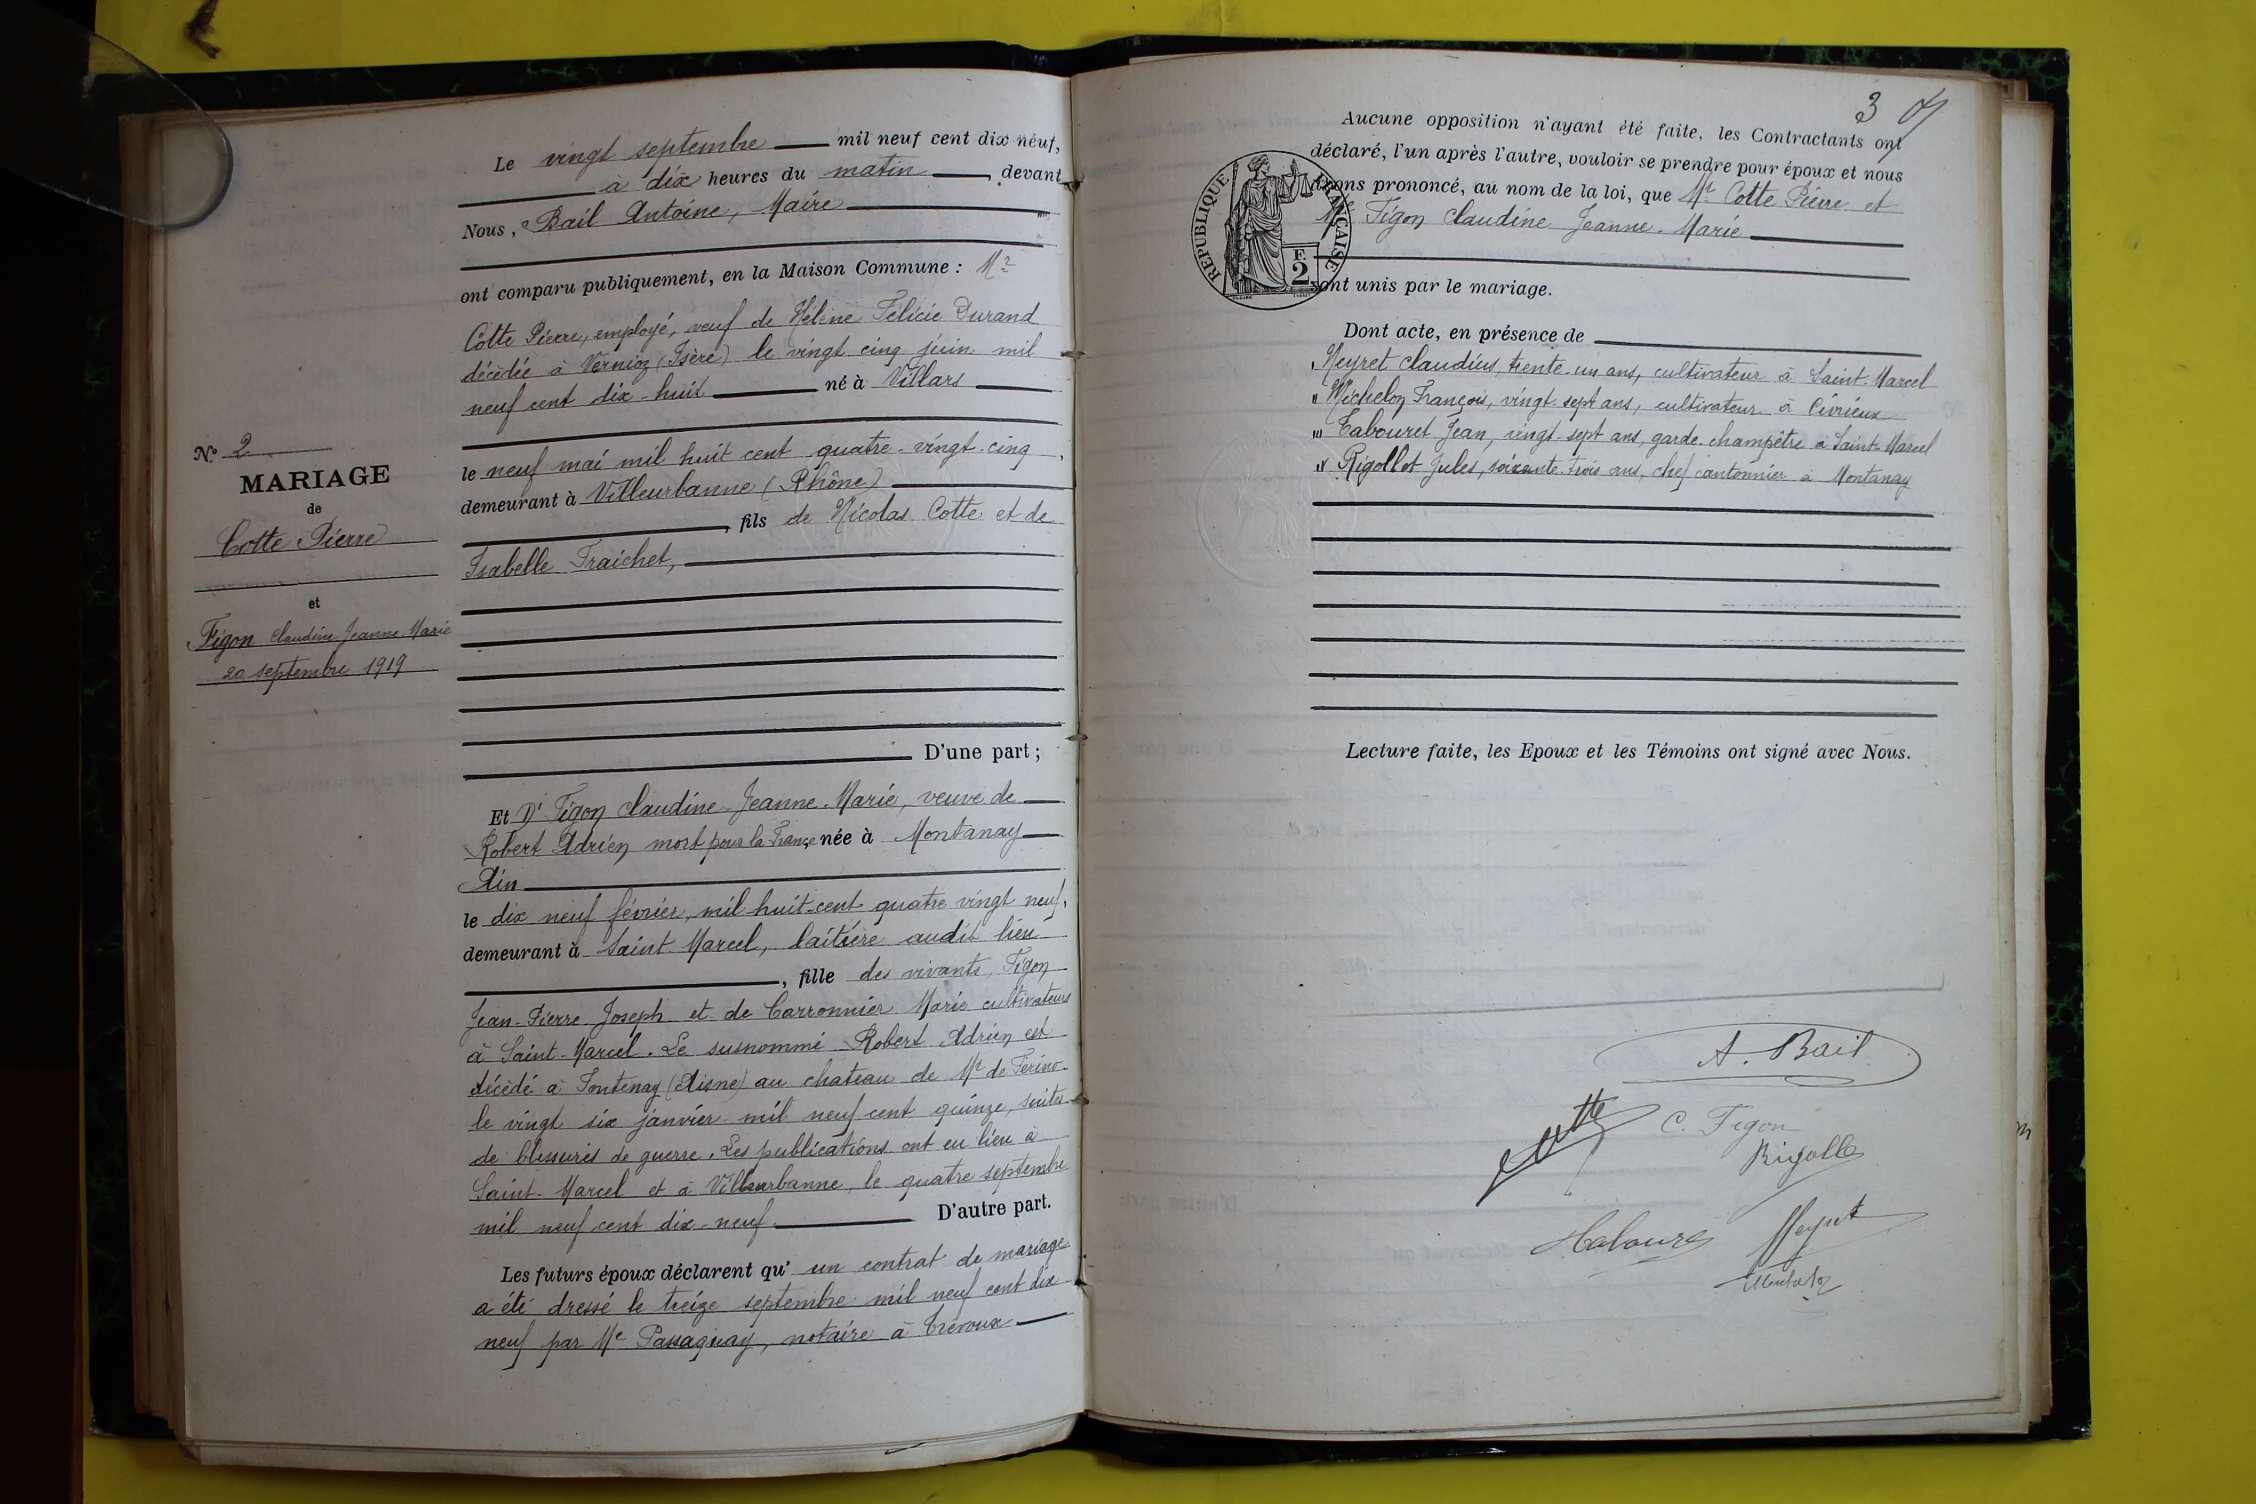 N.° 2
MARIAGE
de
Cotte Pierre
et
Figon Claudine Jeanne Marie
20 septembre 1919
Le vingt septembre mil neuf cent dix neuf,
à dix heures du matin, devant
Nous, Bail Antoine, Maire
ont comparu publiquement, en la Maison Commune : Mr
Cotte Pierre, employé, veuf de Hélène Félicie Durand
décèdée à Vernioz (Isère) le vingt cinq juin mil
neuf cent dix-huit né à Villars
le neuf mai mil huit cent quatre-vingt-cinq,
demeurant à Villeurbanne (Rhône)
, fils de Nicolas Cotte et de
Isabelle Fraichet,
D'une part ;
Et De Figon Claudine Jeanne Marie, veuve de
Robert Adrien mort pour la France née à Montanay
Ain
le dix neuf février, mil huit-cent quatre vingt neuf,
demeurant à Saint-Marcel, laitière audit lieu
, fille des vivants, Figon
Jean-Pierre Joseph et de Carronnier Marie cultivateurs
à Saint-Marcel. Le susnommé Robert Adrien est
décèdé à Fontenay (Aisne) au chateau de Mr de
le vingt six janvier mil neuf cent quinze, suites
de blessures de guerre. Les publications ont eu lieu à
Saint-Marcel et à Villeurbanne, le quatre septembre
mil neuf cent dix-neuf. D'autre part.
Les futurs époux déclarent qu' un contrat de mariage
a été dressé le treize septembre mil neuf cent dix
neuf par Me Passaquay, notaire à Trévoux
3
Aucune opposition n'ayant été faite, les Contractants ont
déclaré, l'un après l'autre, vouloir se prendre pour époux et nous
avons prononcé, au nom de la loi, que Mr Cotte Pierre et
Figon Claudine Jeanne-Marie
RÉPUBLIQUE FRANÇAISE
F.
2
sont unis par le mariage.
Dont acte, en présence de
Neyret Claudius, trente-un ans, cultivateur à Saint-Marcel
Michelon François, vingt sept ans, cultivateur à Civrieux
Tabouret Jean, vingt-sept ans, garde-champêtre à Saint-Marcel
Rigollet Jules, soixante-trois ans, chef cantonnier à Montanay
Lecture faite, les Epoux et les Témoins ont signé avec Nous.
A. Bail
Cotte
C. Figon